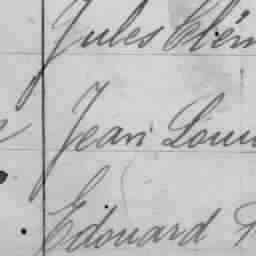 Jules Clém
Jean Loui
Edouard